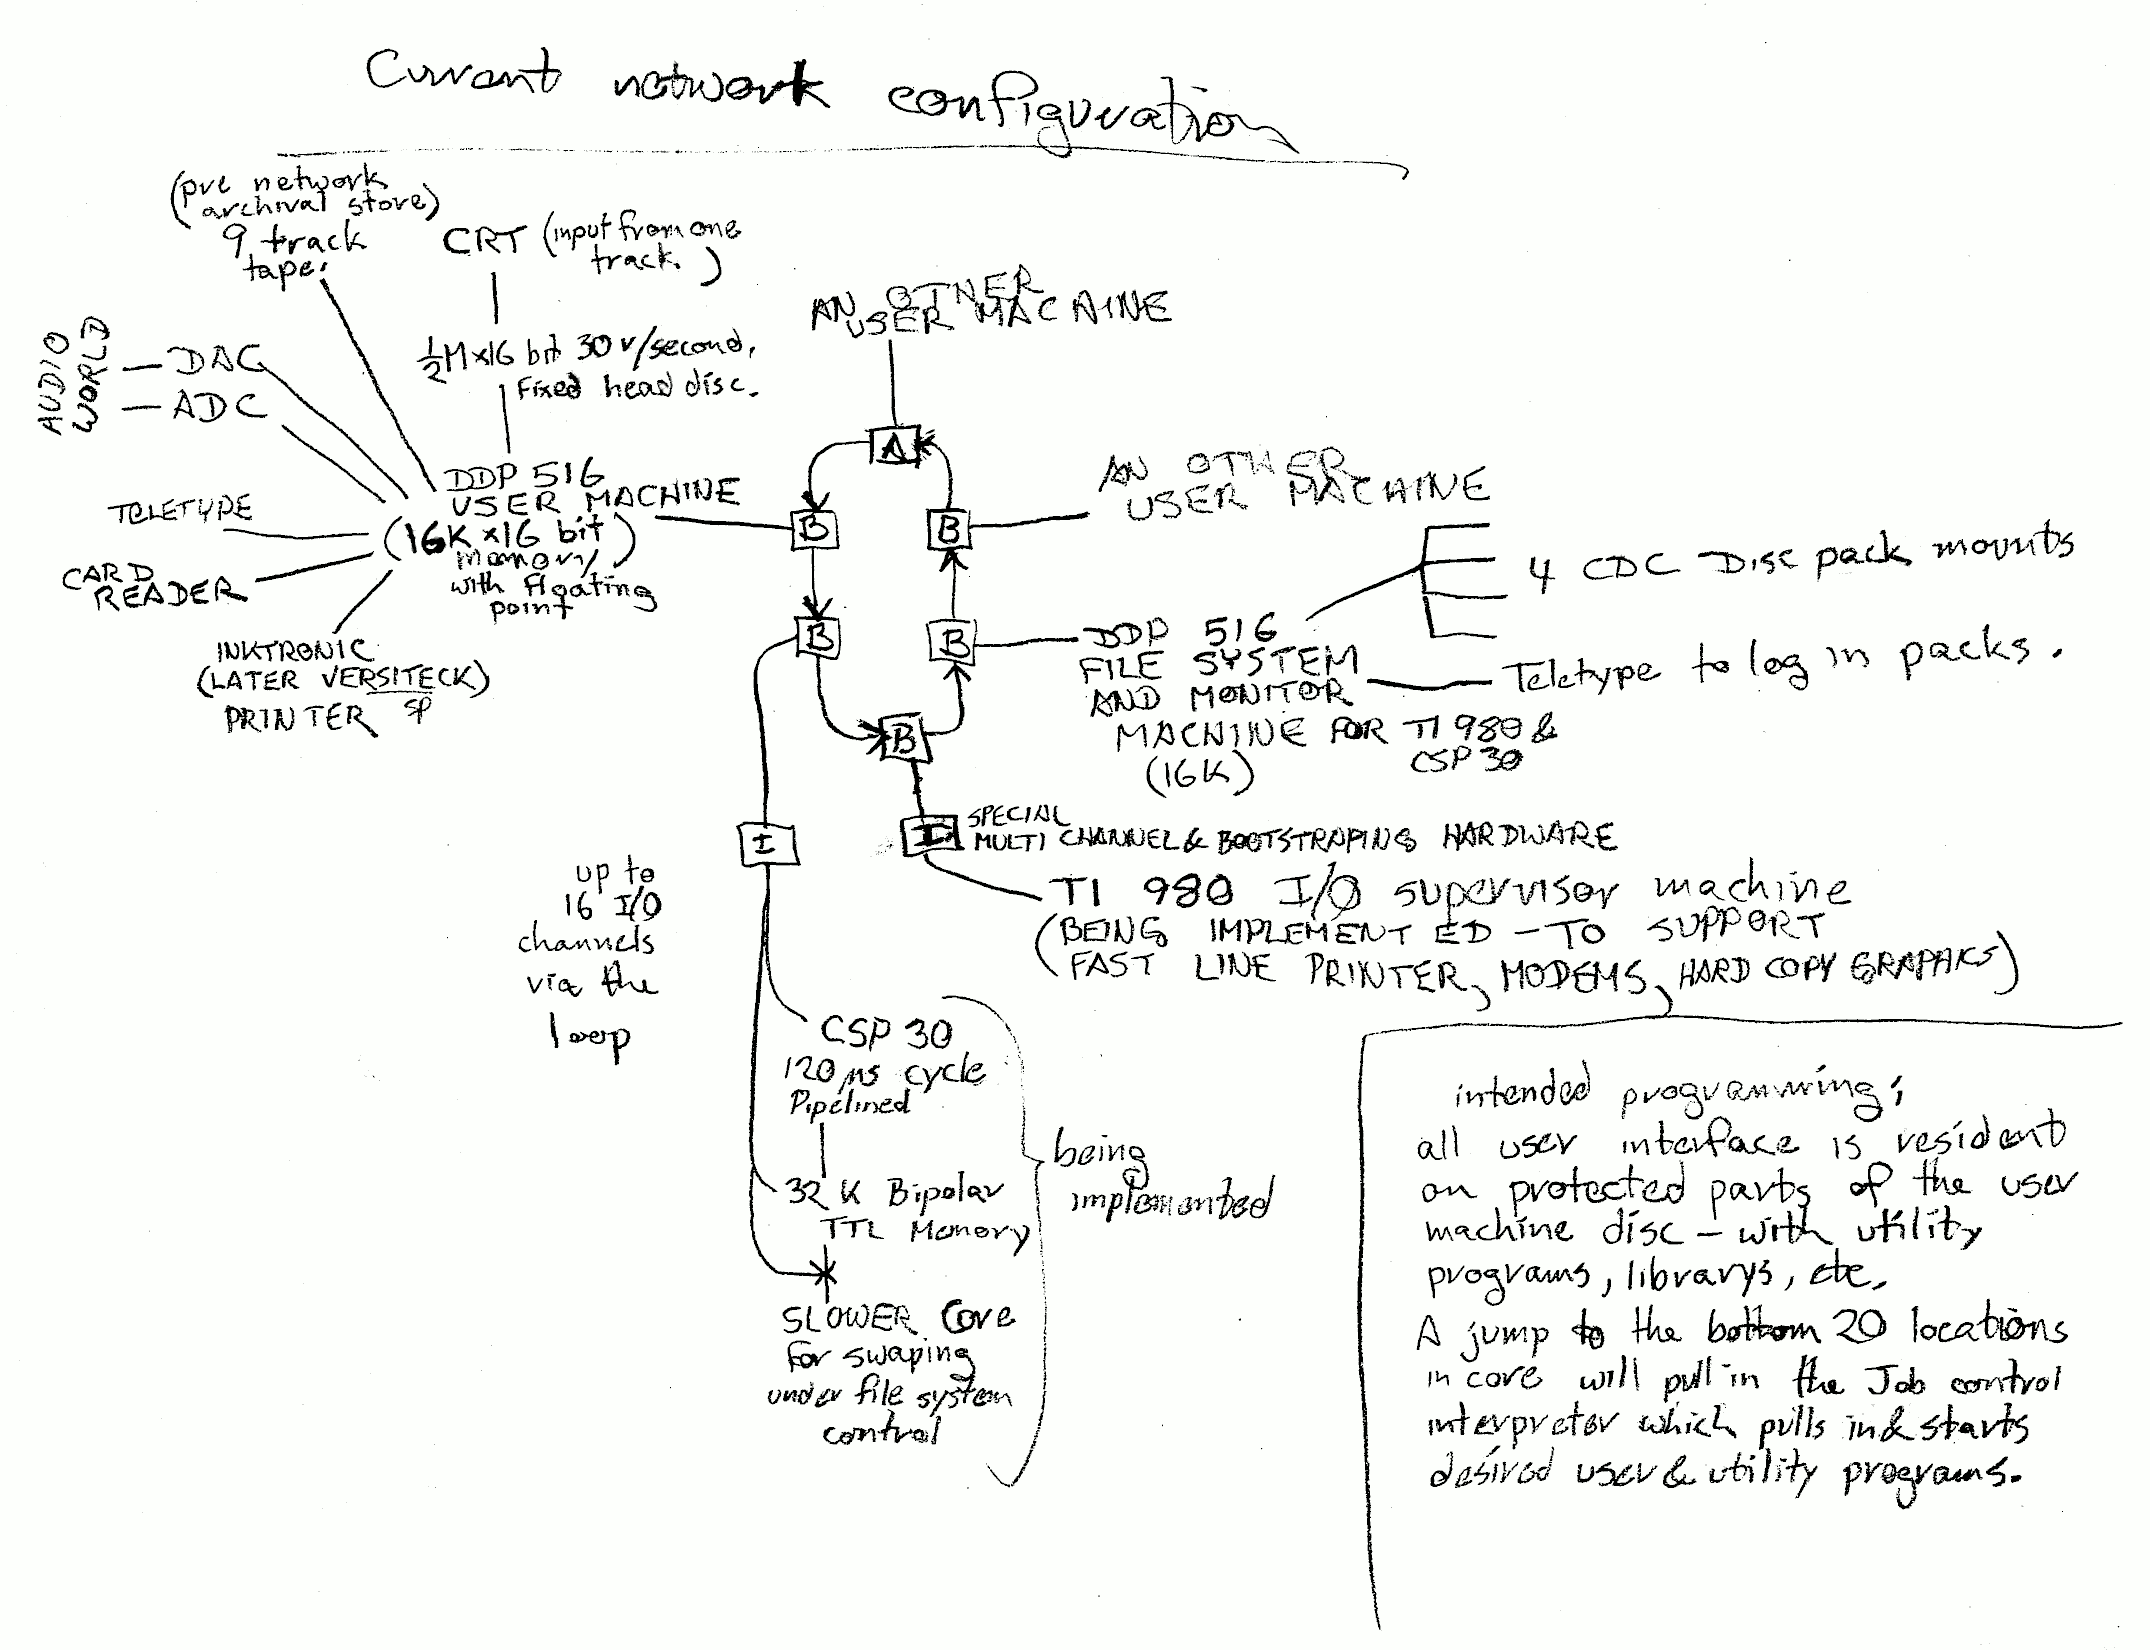 Current network configuration
(pre network
archival store)
9 track
tape.
CRT (input from one
track.)
AN OTHER
USER MACHINE
AUDIO
WORLD
DAC
ADC
½M x16 bit 30 r/second,
Fixed head disc.
A
DDP 516
USER MACHINE
(16K x16 bit)
memory
with floating
point
B
B
AN OTHER
USER MACHINE
TELETYPE
CARD
READER
INKTRONIC
(LATER VERSITECK)
sp
PRINTER
B
B
B
4 CDC Disc pack mounts
DDP 516
FILE SYSTEM
AND MONITOR
MACHINE FOR TI 980 &
CSP 30
(16K)
Teletype to log in packs.
I
I
SPECIAL
MULTI CHANNEL & BOOTSTRAPING HARDWARE
TI 980 I/O supervisor machine
(BEING IMPLEMENTED - TO SUPPORT
FAST LINE PRINTER, MODEMS, HARD COPY GRAPHIKS)
up to
16 I/O
channels
via the
loop
CSP 30
120 ns cycle
Pipelined
32 K Bipolar
TTL Memory
SLOWER Core
for swaping
under file system
control
being
implemented
intended programming;
all user interface is resident
on protected parts of the user
machine disc - with utility
programs, librarys, etc.
A jump to the bottom 20 locations
in core will pull in the Job control
interpretor which pulls in & starts
desired user & utility programs.